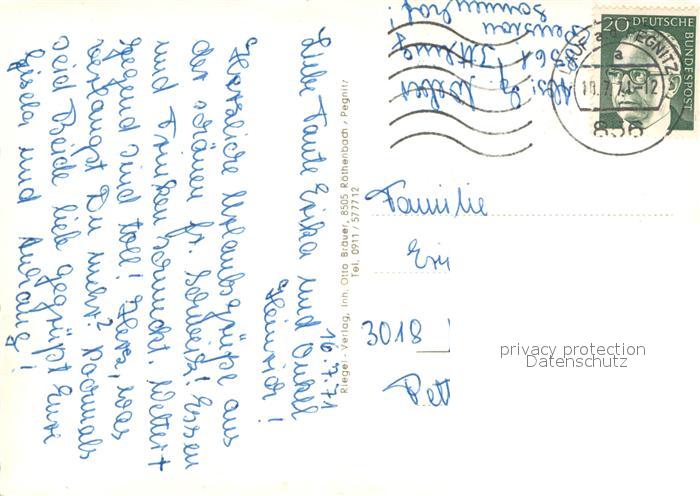 16.7.71
Liebe Tante Erika und Onkel
Heinrich!
Herzliche Urlaubsgrüße aus
der schönen fr. Schweiz! Essen
und Trinken schmeckt. Wetter +
Gegend sind toll! Herz, was
verlangst Du mehr? Nochmals
seid Beide lieb gegrüßt Eure
Gisela und
Riegel - Verlag, Inh. Otto Bräuer, 8505 Röthenbach / Pegnitz
Tel. 0911 / 577712
Abs.: Weber
8561
Pension
Sonnenhof
20 DEUTSCHE
BUNDESPOST
LAUF a.d. PEGNITZ
a
18.7.71-12
856
Familie
Eri
3018
Pett
privacy protection
Datenschutz